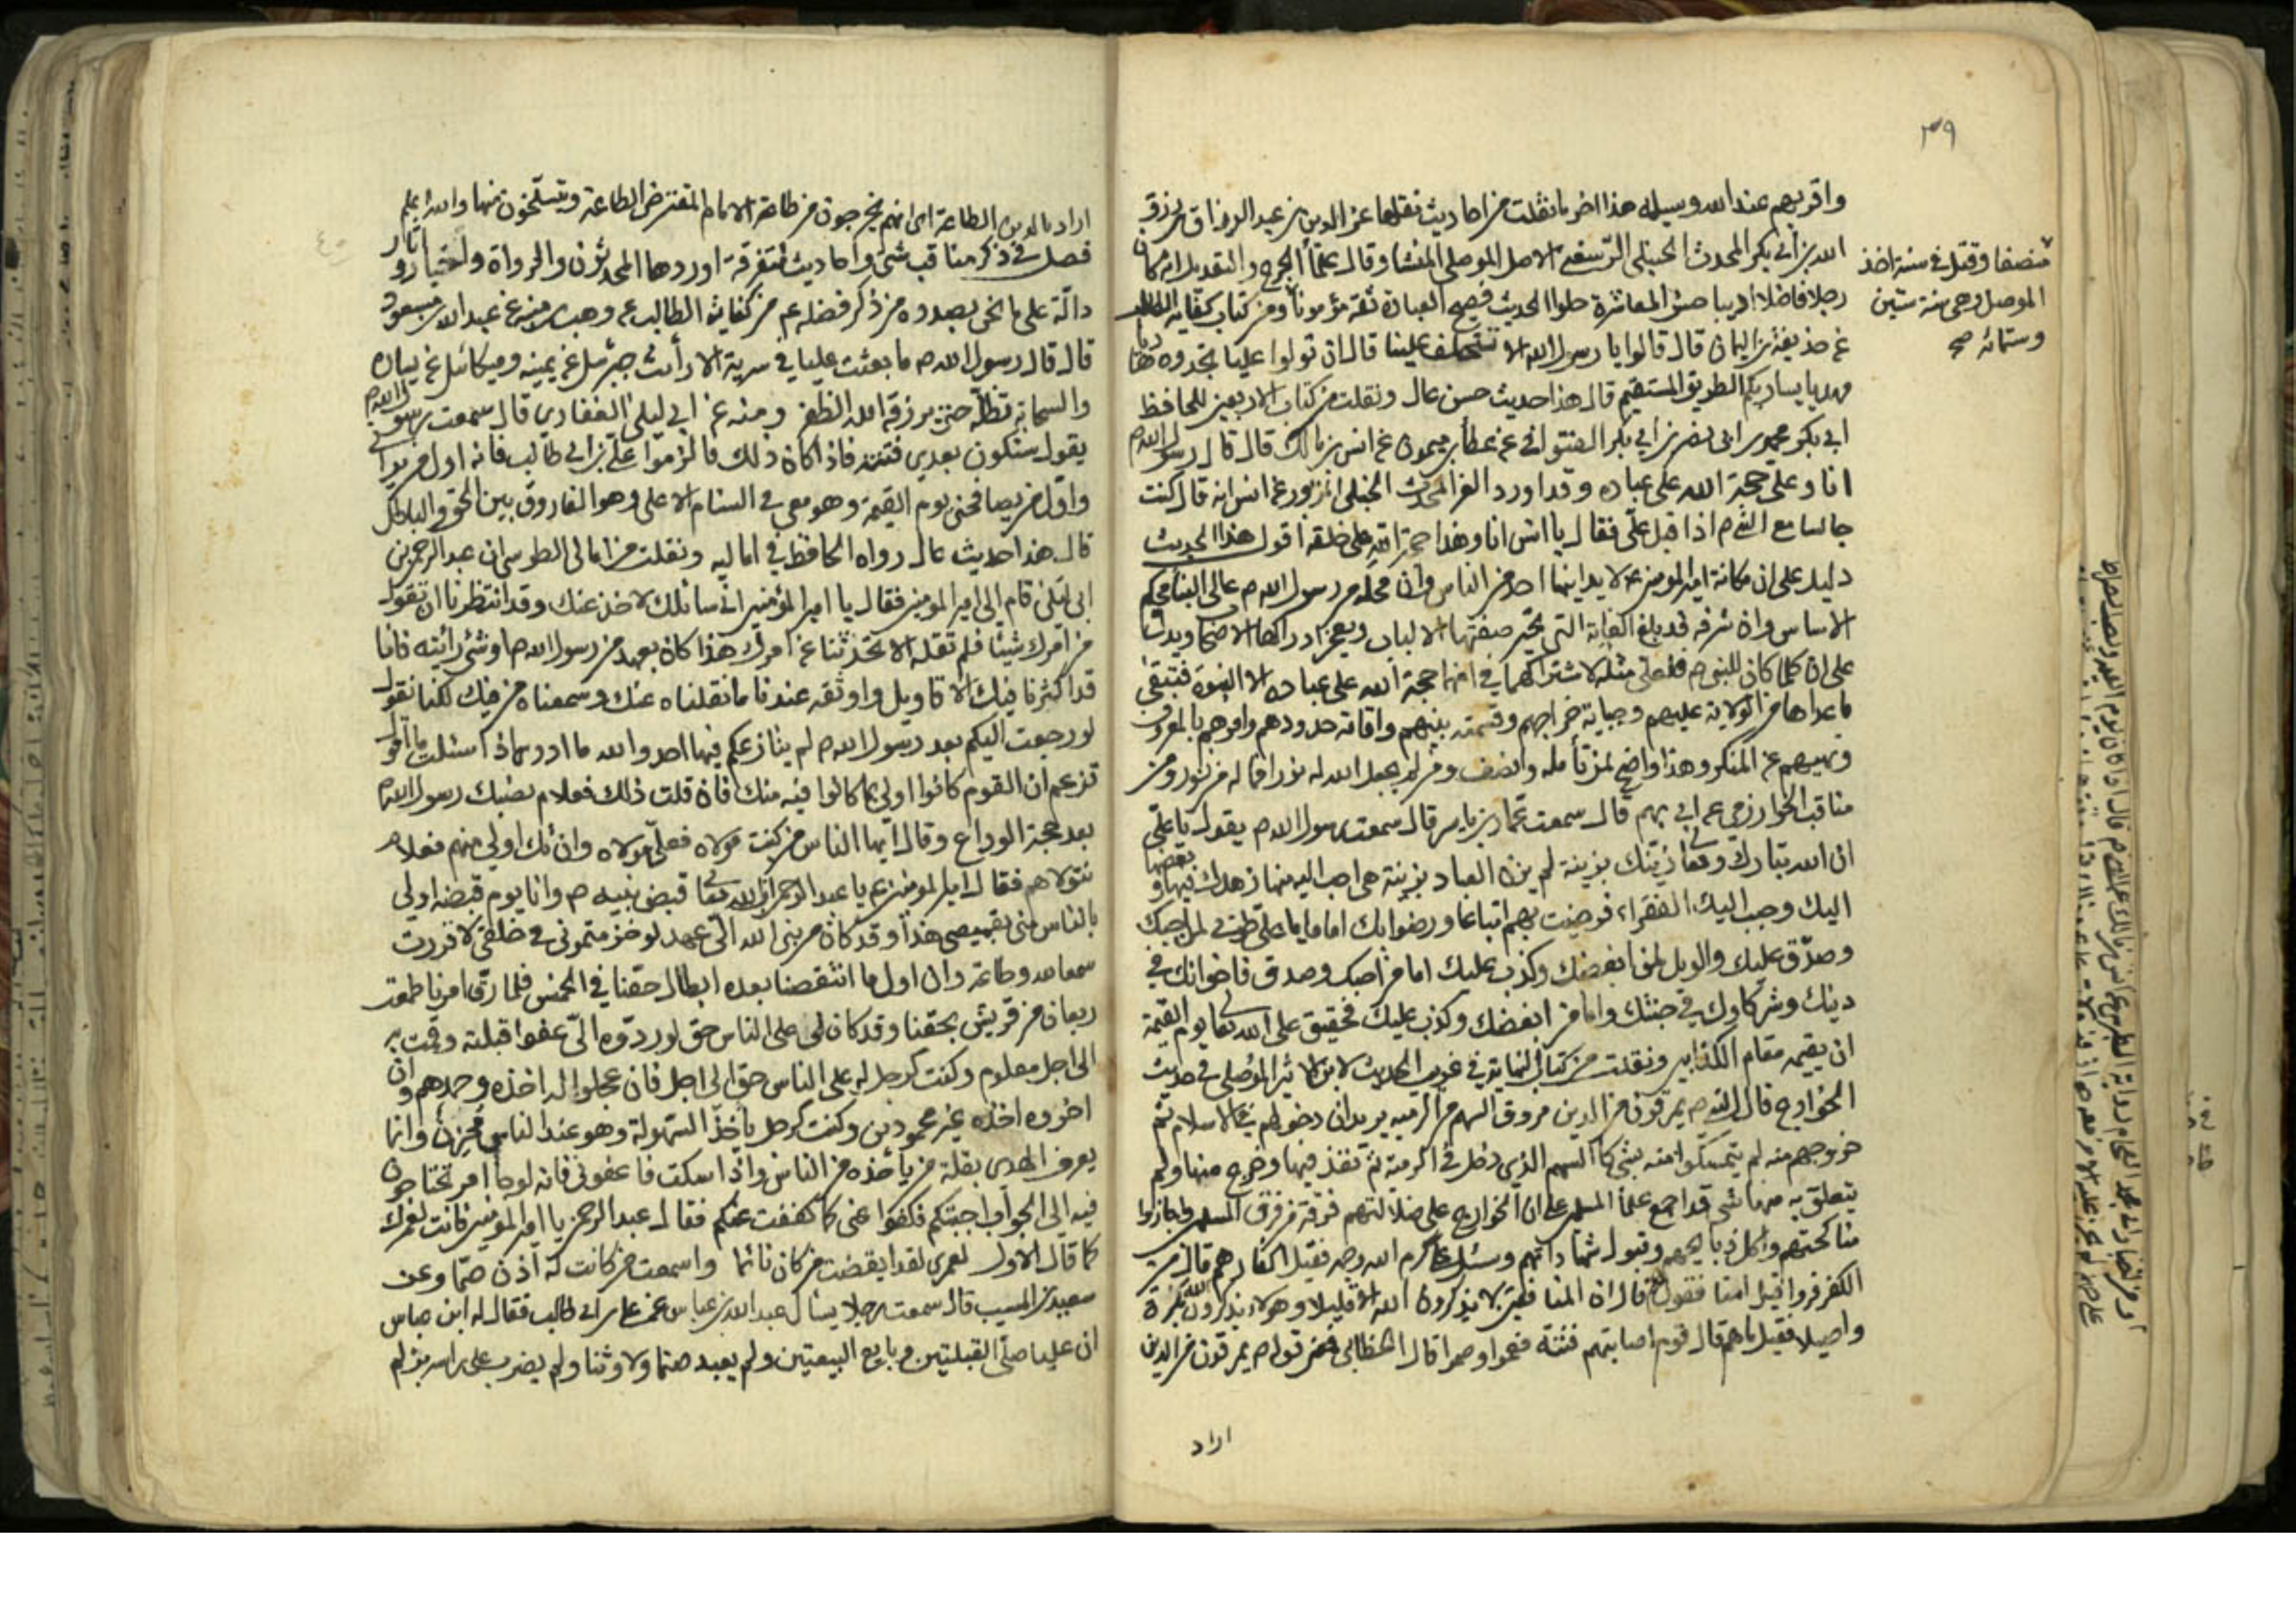 ٣٩
واقربهم عند الله وسيلة هذا اخر ما نقلت من احاديث نقلها عز الدين بن عبد الرزاق بن رزق
الله بن أبي بكر المحدث الحنبلي الرسعني الاصل الموصلي المنشأ وقال علماء الجرح والتعديل انه كان
رجلا فاضلا اديبا حسن المعاشرة حلو الحديث فصيح العبارة ثقة مؤمونا ومن كتاب كفاية الطالب
عن حذيفة بن اليمان قال قالوا يا رسول الله الا تستخلف علينا قال ان تولوا عليا تجدوه هاديا
مهديا يسلك بكم الطريق المستقيم قال هذا حديث حسن عال ونقلت من كتاب الاربعين للحافظ
ابي بكر محمد بن ابي نصر بن ابي بكر الفتواني عن عطا بن ميمون عن انس بن مالك قال قال رسول الله ص
انا وعلي حجة الله على عباده وقد اورد العز المحدث الحنبلي المزبور عن انس انه قال كنت
جالسا مع النبي ص اذ اقبل علي فقال يا انس انا وهذا حجة الله على خلقه اقول هذا الحديث
دليل على ان مكانة امير المؤمنين ع لا يدانيها احد من الناس وان محله من رسول الله ص عالي البناء محكم
الاساس وان شرفه قد بلغ الغاية التي تحير صفتها الالباب ويعجز ادراكها الاضحاء ويدل
على ان كلما كان للنبي ص فلعلي مثله لاشتراكهما في انهما حجة الله على عباده الا النبوة فتبقى
ما عداها من الولاية عليهم وجباية خراجهم وقسمته بينهم واقامة حدودهم وامرهم بالمعروف
ونهيهم عن المنكر وهذا واضح لمن تأمله وانصف ومن لم يجعل الله له نورا فما له من نور ومن
مناقب الخوارزمي عن ابي مريم قال سمعت عمار بن ياسر قال سمعت رسول الله ص يقول يا علي
ان الله تبارك وتعالى زينك بزينة لم يزن العباد بزينة هي احب اليه منها زهدك فيها وبغضها
اليك وحبب اليك الفقراء فرضيت بهم اتباعا ورضوا بك اماما يا علي طوبى لمن احبك
وصدق عليك والويل لمن ابغضك وكذب عليك اما من احبك وصدق فاخوانك في
دينك وشركاوك في جنتك واما من ابغضك وكذب عليك فحقيق على الله تعالى يوم القيمة
ان يقيمه مقام الكذابين ونقلت من كتاب النهاية في غريب الحديث لابن الاثير الموصلي في حديث
الخوارج قال النبي ص يمرقون من الدين مروق السهم من الرمية يريد ان دخولهم في الاسلام ثم
خروجهم منه لم يتمسكوا منه بشي كالسهم الذي دخل في الرمية ثم نفذ فيها وخرج منها ولم
يتعلق به منها شي قد اجمع علماء المسلمين على ان الخوارج على ضلالتهم فرقة من فرق المسلمين واجازوا
مناكحتهم واكل ذبايحهم وقبول شهاداتهم وسئل علي كرم الله وجهه فقيل اكفار هم قال من
الكفر فروا قيل امنافقون قال ان المنافقين لا يذكرون الله الا قليلا وهولاء يذكرون الله بكرة
واصيلا فقيل ما هم قال قوم اصابتهم فتنة فعموا وصموا قال الخطابي فمعنى قوله ص يمرقون من الدين
اراد
منصفا وقتل في سنة اخذ
الموصل وهي سنة ستين
وستمائه صح
٤٠
اراد بالدين الطاعة اي انهم يخرجون من طاعة الامام المفترض الطاعة وينسلخون منها والله اعلم
فصل في ذكر مناقب شتى واحاديث متفرقة اوردها المحدثون والرواة واخبار وآثار
دالة على ما نحن بصدده من ذكر فضله ع من كفاية الطالب عن وهب بن منبه عن عبد الله بن مسعود
قال قال رسول الله ص ما بعثت عليا في سرية الا رأيت جبرئيل عن يمينه وميكائيل عن يساره
والسحابة تظله حتى يرزقه الله الظفر ومنه عن ابي ليلى الغفاري قال سمعت رسول الله ص
يقول ستكون بعدي فتنة فاذا كان ذلك فالزموا علي بن ابي طالب فانه اول من يراني
واول من يصافحني يوم القيمة وهو معي في السنام الاعلى وهو الفاروق بين الحق والباطل
قال هذا حديث عال رواه الحافظ في اماليه ونقلت من امالي الطوسي ان عبد الرحمن بن
ابي ليلى قام الى امير المؤمنين فقال يا امير المؤمنين اني سائلك لاخذ عنك وقد انتظرنا ان تقول
من امرك شيئا فلم تقله الا تحدثنا عن امرك هذا كان بعهد من رسول الله ص او شئ رأيته فانا
قد اكثرنا فيك الاقاويل واوثقه عندنا ما نقلناه عنك وسمعناه من فيك كنا نقول
لو رجعت اليكم بعد رسول الله ص لم ينازعكم فيها احد والله ما ادري اذا سئلت ما اقول
تزعم ان القوم كانوا اولى بما كانوا فيه منك فان قلت ذلك فعلام نصبك رسول الله ص
بعد حجة الوداع وقال ايها الناس من كنت مولاه فعلي مولاه وان تك اولى منهم فعلام
نتولاهم فقال امير المؤمنين ع يا عبد الرحمن ان الله تعالى قبض نبيه ص وانا يوم قبضه اولى
بالناس مني بقميصي هذا وقد كان من نبي الله الي عهد لو خزمتموني في خلقي لاقررت
سمعا لله وطاعة وان اول ما انتقصنا بعده ابطال حقنا في الخمس فلما رق امرنا طمعت
رعيان من قريش بحقنا وقد كان لي على الناس حق لو ردوه الي عفوا قبلته وقمت به
الى اجل معلوم وكنت كرجل له على الناس حق الى اجل فان عجلوا له اخذه وحمدهم وان
اخروه اخذه غير محمودين وكنت كرجل ياخذ السهولة وهو عند الناس محزون وانما
يعرف الهدى بقلة من يأخذه من الناس واذا سكت فاعفوني فانه لو جاء امر تحتاجون
فيه الى الجواب اجبتكم فكفوا عني ما كففت عنكم فقال عبد الرحمن يا امير المؤمنين فانت لعمرك
كما قال الاول لعمري لقد ايقضت من كان نائما واسمعت من كانت له اذنان وعن
سعيد بن المسيب قال سمعت رجلا يسأل عبد الله بن عباس عن علي بن ابي طالب فقال له ابن عباس
ان عليا صلى القبلتين وبايع البيعتين ولم يعبد صنما ولا وثنا ولم يضرب على راسه بزلم